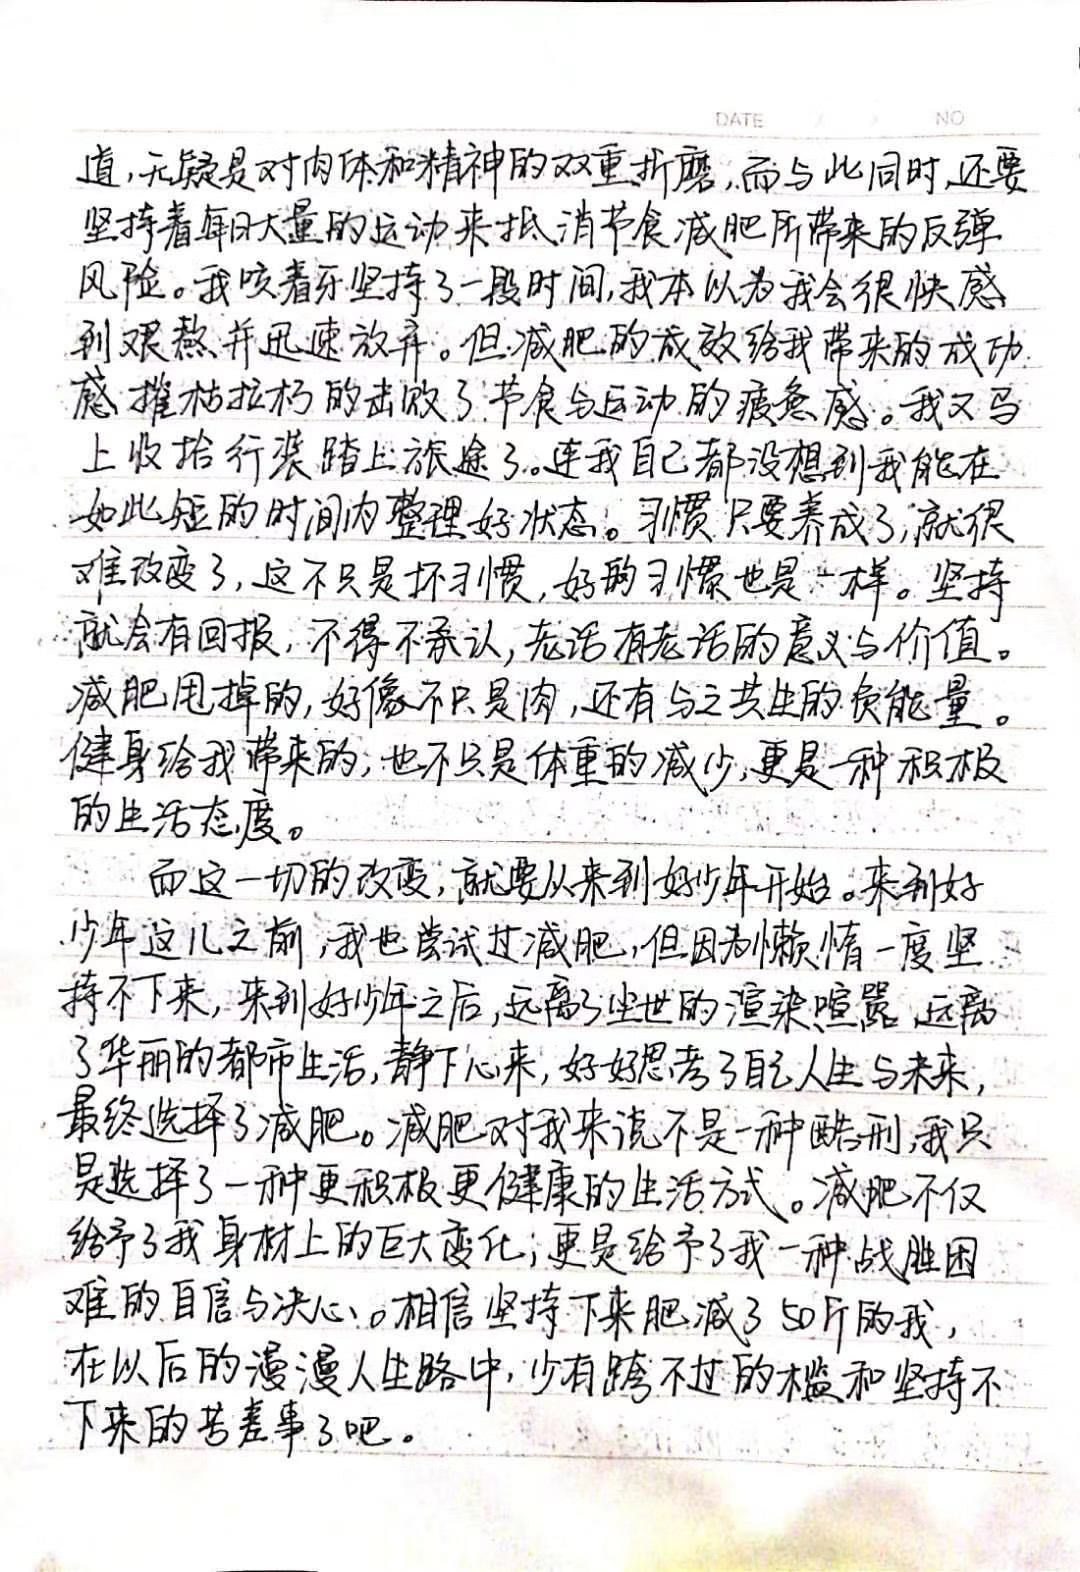 DATE / / NO
道,无疑是对肉体和精神的双重折磨,而与此同时,还要
坚持着每日大量的运动来抵消节食减肥所带来的反弹
风险。我咬着牙坚持了一段时间,我本以为我会很快感
到艰熬并迅速放弃。但减肥的成效给我带来的成功
感摧枯拉朽的击败了节食与运动的疲惫感。我又马
上收拾行装踏上旅途了。连我自己都没想到我能在
如此短的时间内整理好状态。习惯只要养成了,就很
难改变了,这不只是坏习惯,好的习惯也是一样。坚持
就会有回报,不得不承认,老话有老话的意义与价值。
减肥甩掉的,好像不只是肉,还有与之共生的负能量。
健身给我带来的,也不只是体重的减少,更是一种积极
的生活态度。
而这一切的改变,就要从来到好少年开始。来到好
少年这儿之前,我也尝试过减肥,但因为懒惰一度坚
持不下来,来到好少年之后,远离了尘世的渲染喧嚣,远离
了华丽的都市生活,静下心来,好好思考了自己人生与未来,
最终选择了减肥。减肥对我来说不是一种酷刑,我只
是选择了一种更积极更健康的生活方式。减肥不仅
给予了我身材上的巨大变化,更是给予了我一种战胜困
难的自信与决心。相信坚持下来肥减了50斤的我,
在以后的漫漫人生路中,少有跨不过的槛和坚持不
下来的苦差事了吧。